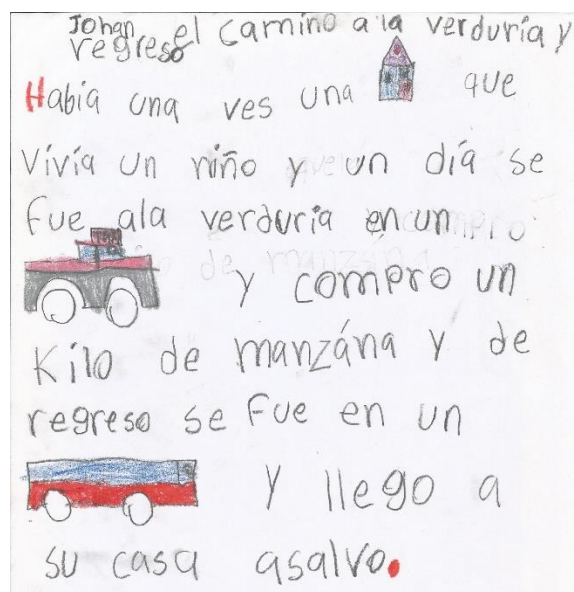 Johan el camino a la verduría y
regreso
Había una ves una que
Vivía un niño y un día se
fue ala verduria en un
y compro un
Kilo de manzána y de
regreso se fue en un
y llego a
su casa asalvo.